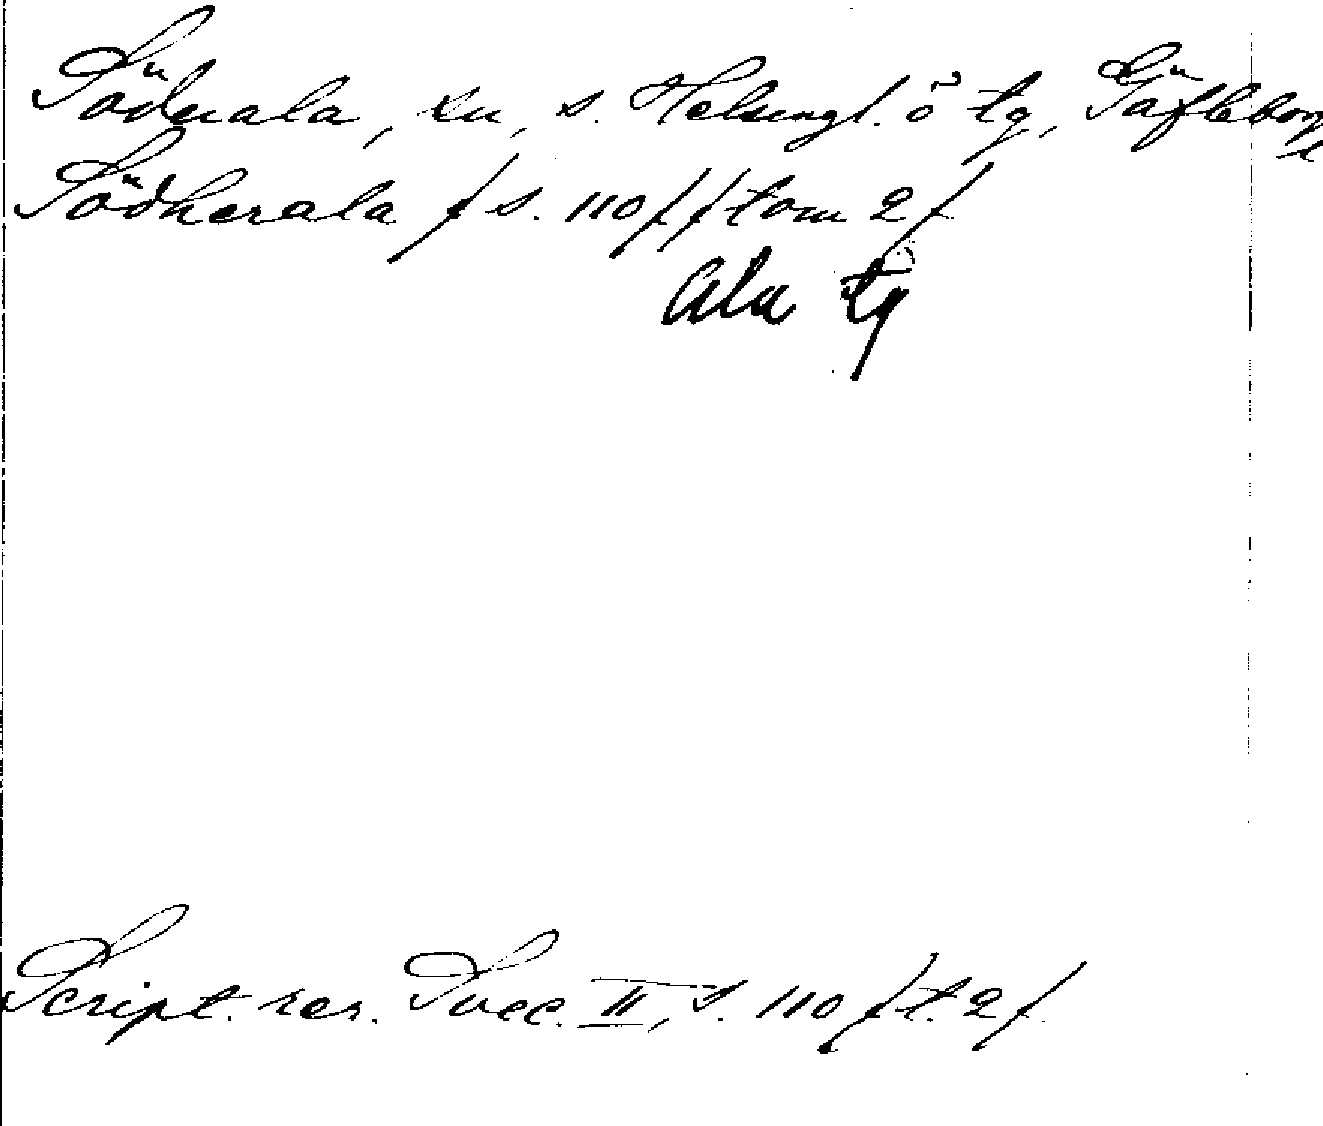 Söderala, sn, s. Helsingl. ö tg, Gäfleborgs l
Södherala / s. 110 / / tom 2 /
Ala tg
Script. rer. Svec. II, s. 110 / t. 2 /